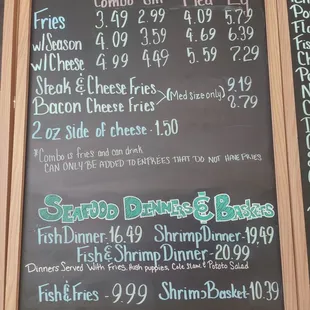 Combo Sm Med Lg
Fries 3.49 2.99 4.09 5.79
w/Season 4.09 3.59 4.69 6.39
w/Cheese 4.99 4.49 5.59 7.29
Steak & Cheese Fries 9.19
(Med size only)
Bacon Cheese Fries 8.79
2 oz side of cheese • 1.50
*Combo is fries and can drink
CAN ONLY BE ADDED TO ENTREES THAT DO NOT HAVE FRIES
SEAFOOD DINNERS & BASKETS
Fish Dinner • 16.49 Shrimp Dinner • 19.49
Fish & Shrimp Dinner • 20.99
Dinners Served With Fries, Hush puppies, Cole Slaw & Potato Salad
Fish & Fries - 9.99 Shrimp Basket • 10.39